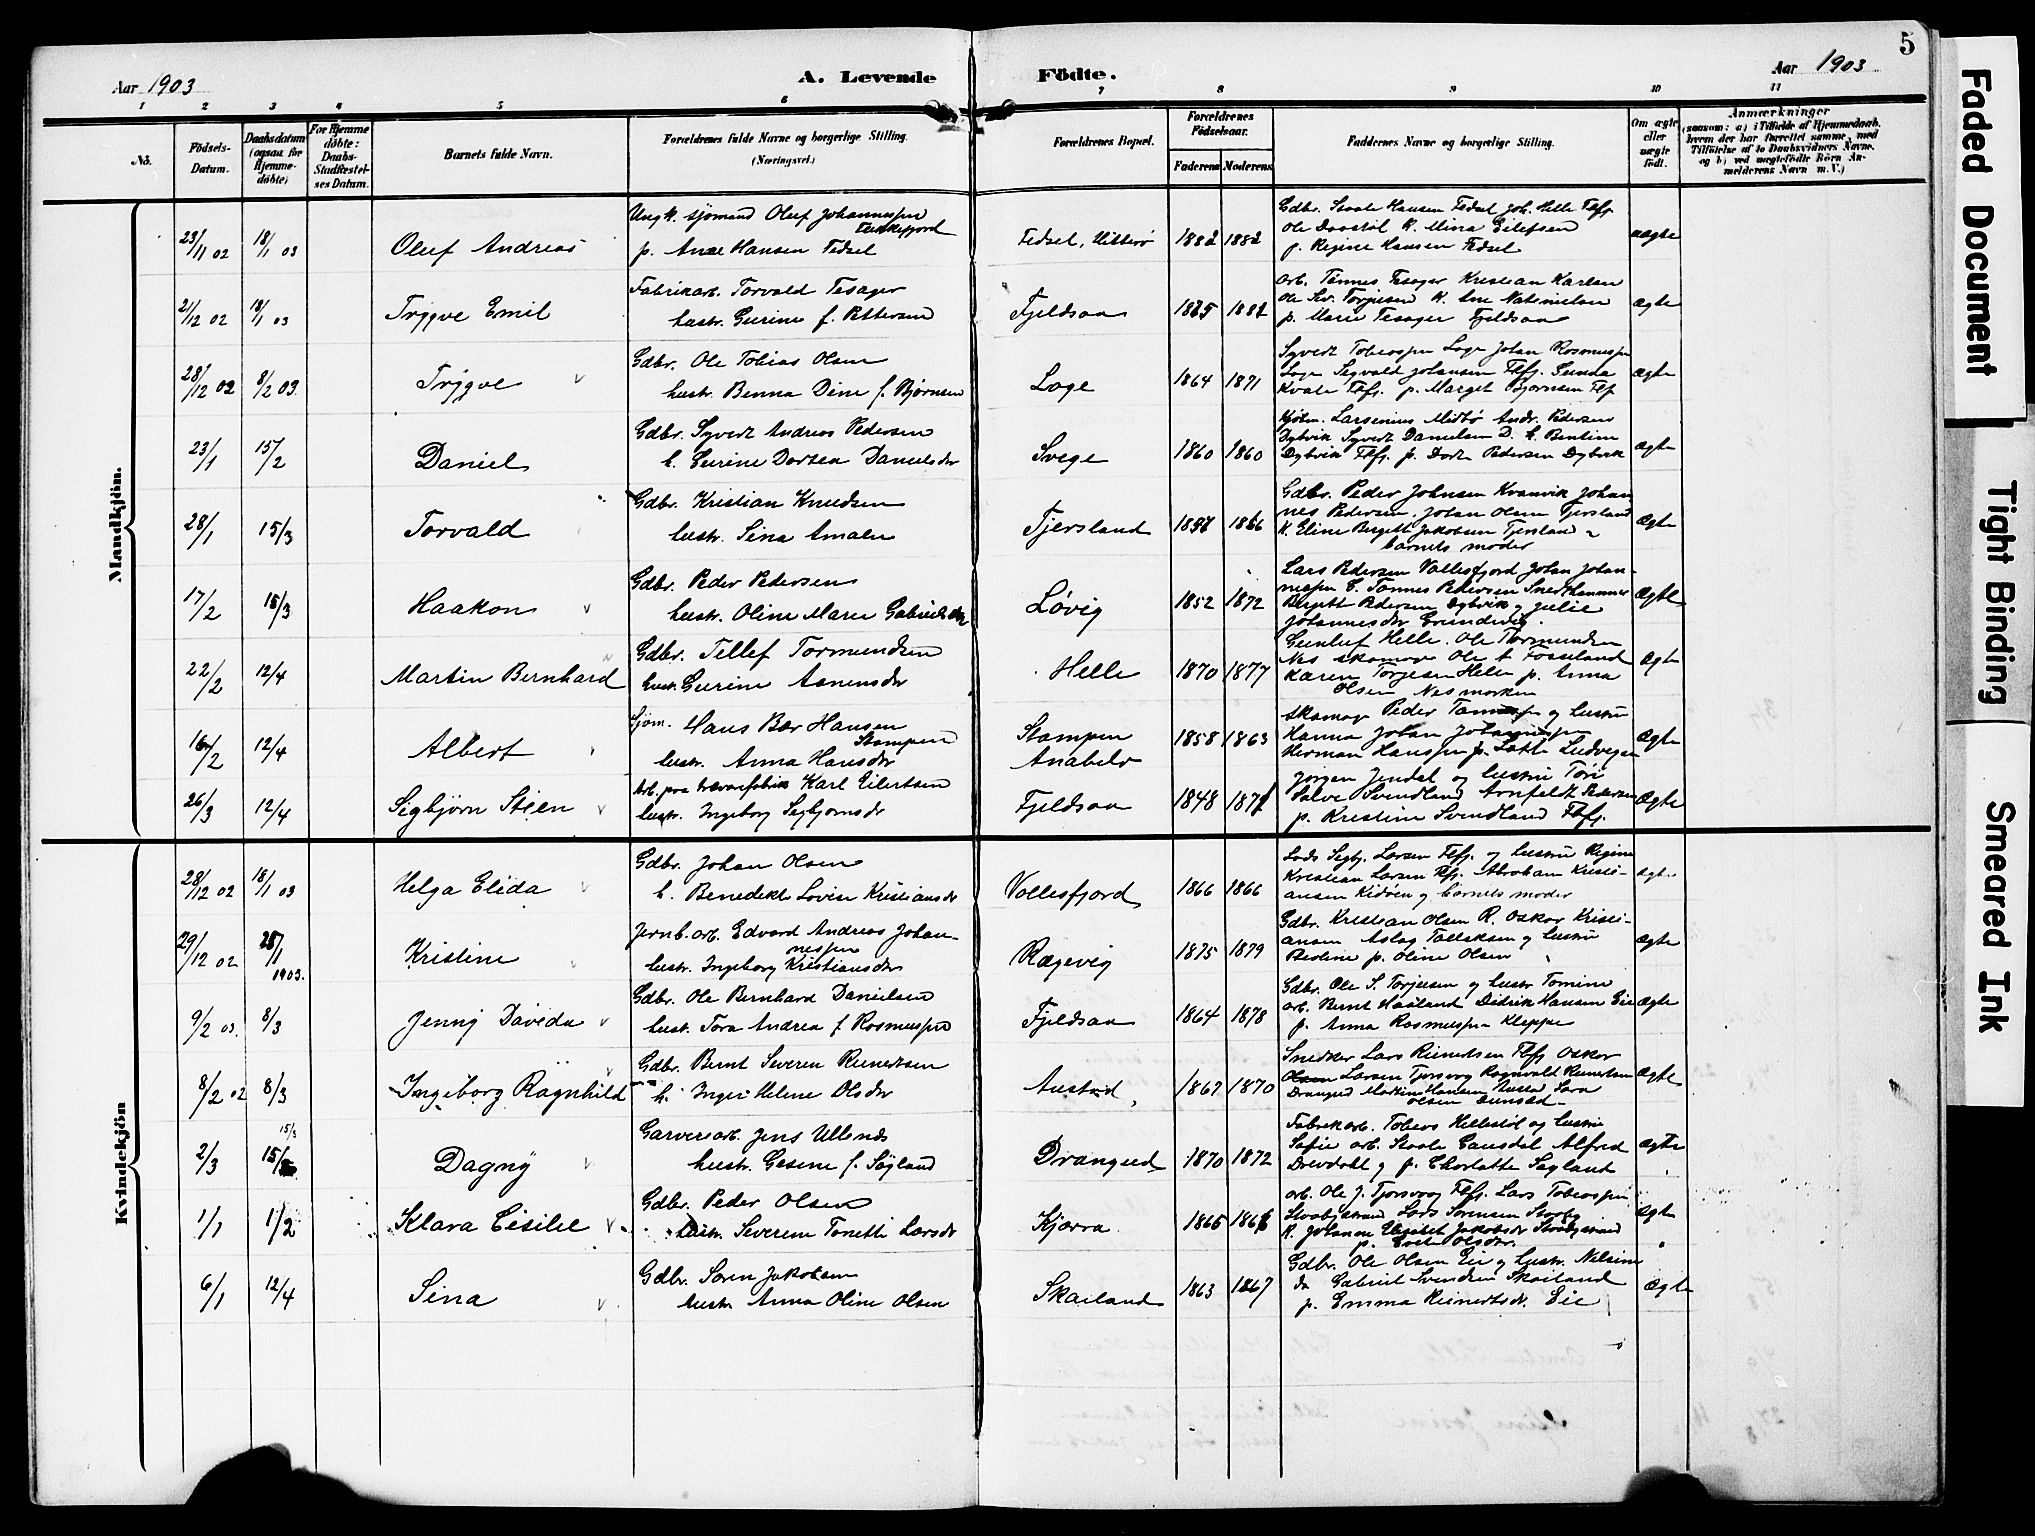 5
Aar 1903
A. Levende
Födte.
Aar 1903
1 2 3 4 5 6 7 8 9 10 11
No.
Födsels-
Datum.
Daabsdatum
(ogsaa for
Hjemme-
döbte)
For Hjemme
döbte:
Daabs-
Stadfæstel-
ses Datum.
Barnets fulde Navn.
Forældrenes fulde Navne og borgerlige Stilling.
(Næringsvei.)
Forældrenes Bopæl.
Forældrenes
Födselsaar.
Faderens
Moderens
Faddernes Navne og borgerlige Stilling.
Om ægte
eller
uægte
født.
Anmærkninger
(saasom: a) i Tilfælde af Hjemmedaab,
hvem der har forrettet samme, med
Tilföielse af to Daabsvidners Navne,
og b) ved uægtefödte Börn An-
melderens Navn m.V.)
Mandkjön.
23/11 02 18/1 03 Oluf Andreas
Ungk. sjømand Oluf Johannesen
p. Ane Hansen Fedsel
Fedsel, Hitterø 1882 1882
Gdbr. Staale Hansen Fedsel Joh. Helle Flfj.
K. Mina Eilefsen
p. Regine Hansen Fedsel
uægte
21/12 02 18/1 03 Trygve Emil
Fabrikarb. Torvald Tesager
hustr. Gurine f. Pettersen
Fjeldsaa 1885 1882
arb. Tønnes Tesager Kristian Karlsen
Ole Sv. Torjusen K. Ane
p. Marie Tesager Fjeldsaa
Ægte
28/12 02 8/2 03. Trygve
Gdbr. Ole Tobias Olsen
hustr. Benna Dine f. Bjørnsen
Loge 1864 1871
Syvert Tobiassen Loge Johan Rasmussen
Loge Sigvald Johansen Flfj. Gunda
Kvale Flfj. p. Marget Bjørnsen Flf
Ægte
23/1 15/2 Daniel
Gdbr. Syvert Andreas Pedersen
h. Gurine Dortea Danielsdr
Svege 1860 1860
Kjøbm. Larsenius Midbø Andr. Pedersen
Dybvik Syvert Danielsen D. K. Bentine
Dybvik Flfj. p. Dorte Pedersen Dybvik
Ægte
28/1 15/3 Torvald
Gdbr. Kristian Knudsen
hustr. Sina Amalie
Tjersland 1866
Gdbr. Peder Johnsen Kvanvik Johan
nes Pedersen, Johan Olsen Tjersland
K. Eline Bergitt Jakobsen Tjersland
barnets moder
Ægte
17/2 15/3 Haakon
Gdbr. Peder Pedersen
hustr. Oline Marie Gabrielsdtr
Løvig 1852 1872
Lars Pedersen Vollesfjord Johan Johan-
nesen E. Tønnes Pedersen
Bergitt Pedersen Dybvik og Julie
Johannesdr
Ægte
22/2 12/4 Martin Bernhard
Gdbr. Tellef Tormundsen
hust. Gurine Asnensdr
Helle 1870 1877
Gunluf Helle. Ole Tormundsen
Nes skomag. Ole A. Fosseland
Karen Torjesen Helle p. Anna
Olsen Nesmorken
Ægte
16/2 12/4 Albert
Sjøm. Hans Bær Hansen
Stampen
hustr. Anna Hansdr
Stampen
Anabelø 1858 1863
skomag Peder Tønnesen og hustru
Hanna Johan Johannesen
Herman Hanssen p. Lotte Ludvigsen
Ægte
26/3 12/4 Sigbjørn Steen
Arb. paa trævarefabrik Karl Eilertsen
hustr. Ingeborg Sigbjørnsdr
Fjeldsaa 1848
Jørgen Jendal og hustru Tøri
Salve Svindland Arnfeldt Pedersen
p. Kristine Svindland Flfj.
Ægte
Kvindekjön
28/12 02 18/1 03 Helga Elida
Gdbr. Johan Olsen
h. Benedikte Lovise Kristiansdr
Vollesfjord 1866 1866
Lods Sigbj. Larsen Flfj. og hustru Regine
Kristian Larsen Flfj. Abraham Kristi-
ansen Kidøen og barnets moder
ægte
29/12 02 25/1 1903. Kristine
Jernb. arb. Edvard Andreas Johan-
nessen
hustr. Ingeborg Kristiansdr
Rægevig 1875 1879
Gdbr. Kristian Olsen R. Oskar Kristi-
ansen Aslag Tallaksen og hustru
Bedine p. Oline Olsen
Ægte
9/2 03. 8/3 Jenny Davida
Gdbr. Ole Bernhard Danielsen
hust. Tora Andrea f Rasmussen
Fjeldsaa 1864 1878
Gdbr. Ole S. Torjusen og hustr Tomine
arb. Bernt Haaland Didrik Hansen Eie
p. Anna Rasmussen Kleppe
Ægte
8/2 02 8/3 Ingeborg Ragnhild
Gdbr. Bernt Severin Reinertsen
h. Inger Helene Olsdr
Austad, 1867 1870
Snedker Lars Reinertsen Flfj Oskar
Larsen Tjorsvog Ragnvald Reinertsen
Drangeid Martin Hansen Austad Sara
Olsen
Ægte
2/3 15/3 15/3 Dagny
Garveriarb. Jens Ullenes
hustr. Gesine f. Søyland
Drangeid 1870 1872
Fabrikarb. Tobias Hellestøl og hustru
Sofie arb. Staale Gausdal Alfred
Drevdahl og p. Charlotte Søyland
ægte
1/1 1/2 Klara Cisilie
Gdbr. Peder Olsen
hustr. Severine Tonette Larsdr
Kjørra 1865
arb. Ole J. Tjorsvog Flfj. Lars Tobiassen
Lods Sørensen
K. Johanne Elisabet Jakobsdr
p. Olsdtr.
ægte
6/1 12/4 Sina
Gdbr. Søren Jakobsen
hustr. Anna Oline Olsen
Skailand 1863 1867
Gdbr. Ole Olsen Eie og hustr. Nilsine
do Gabriel Svendsen Skailand
p. Emma Reinertsdr. Eie
Ægte
Faded Document
Tight Binding
Smeared Ink